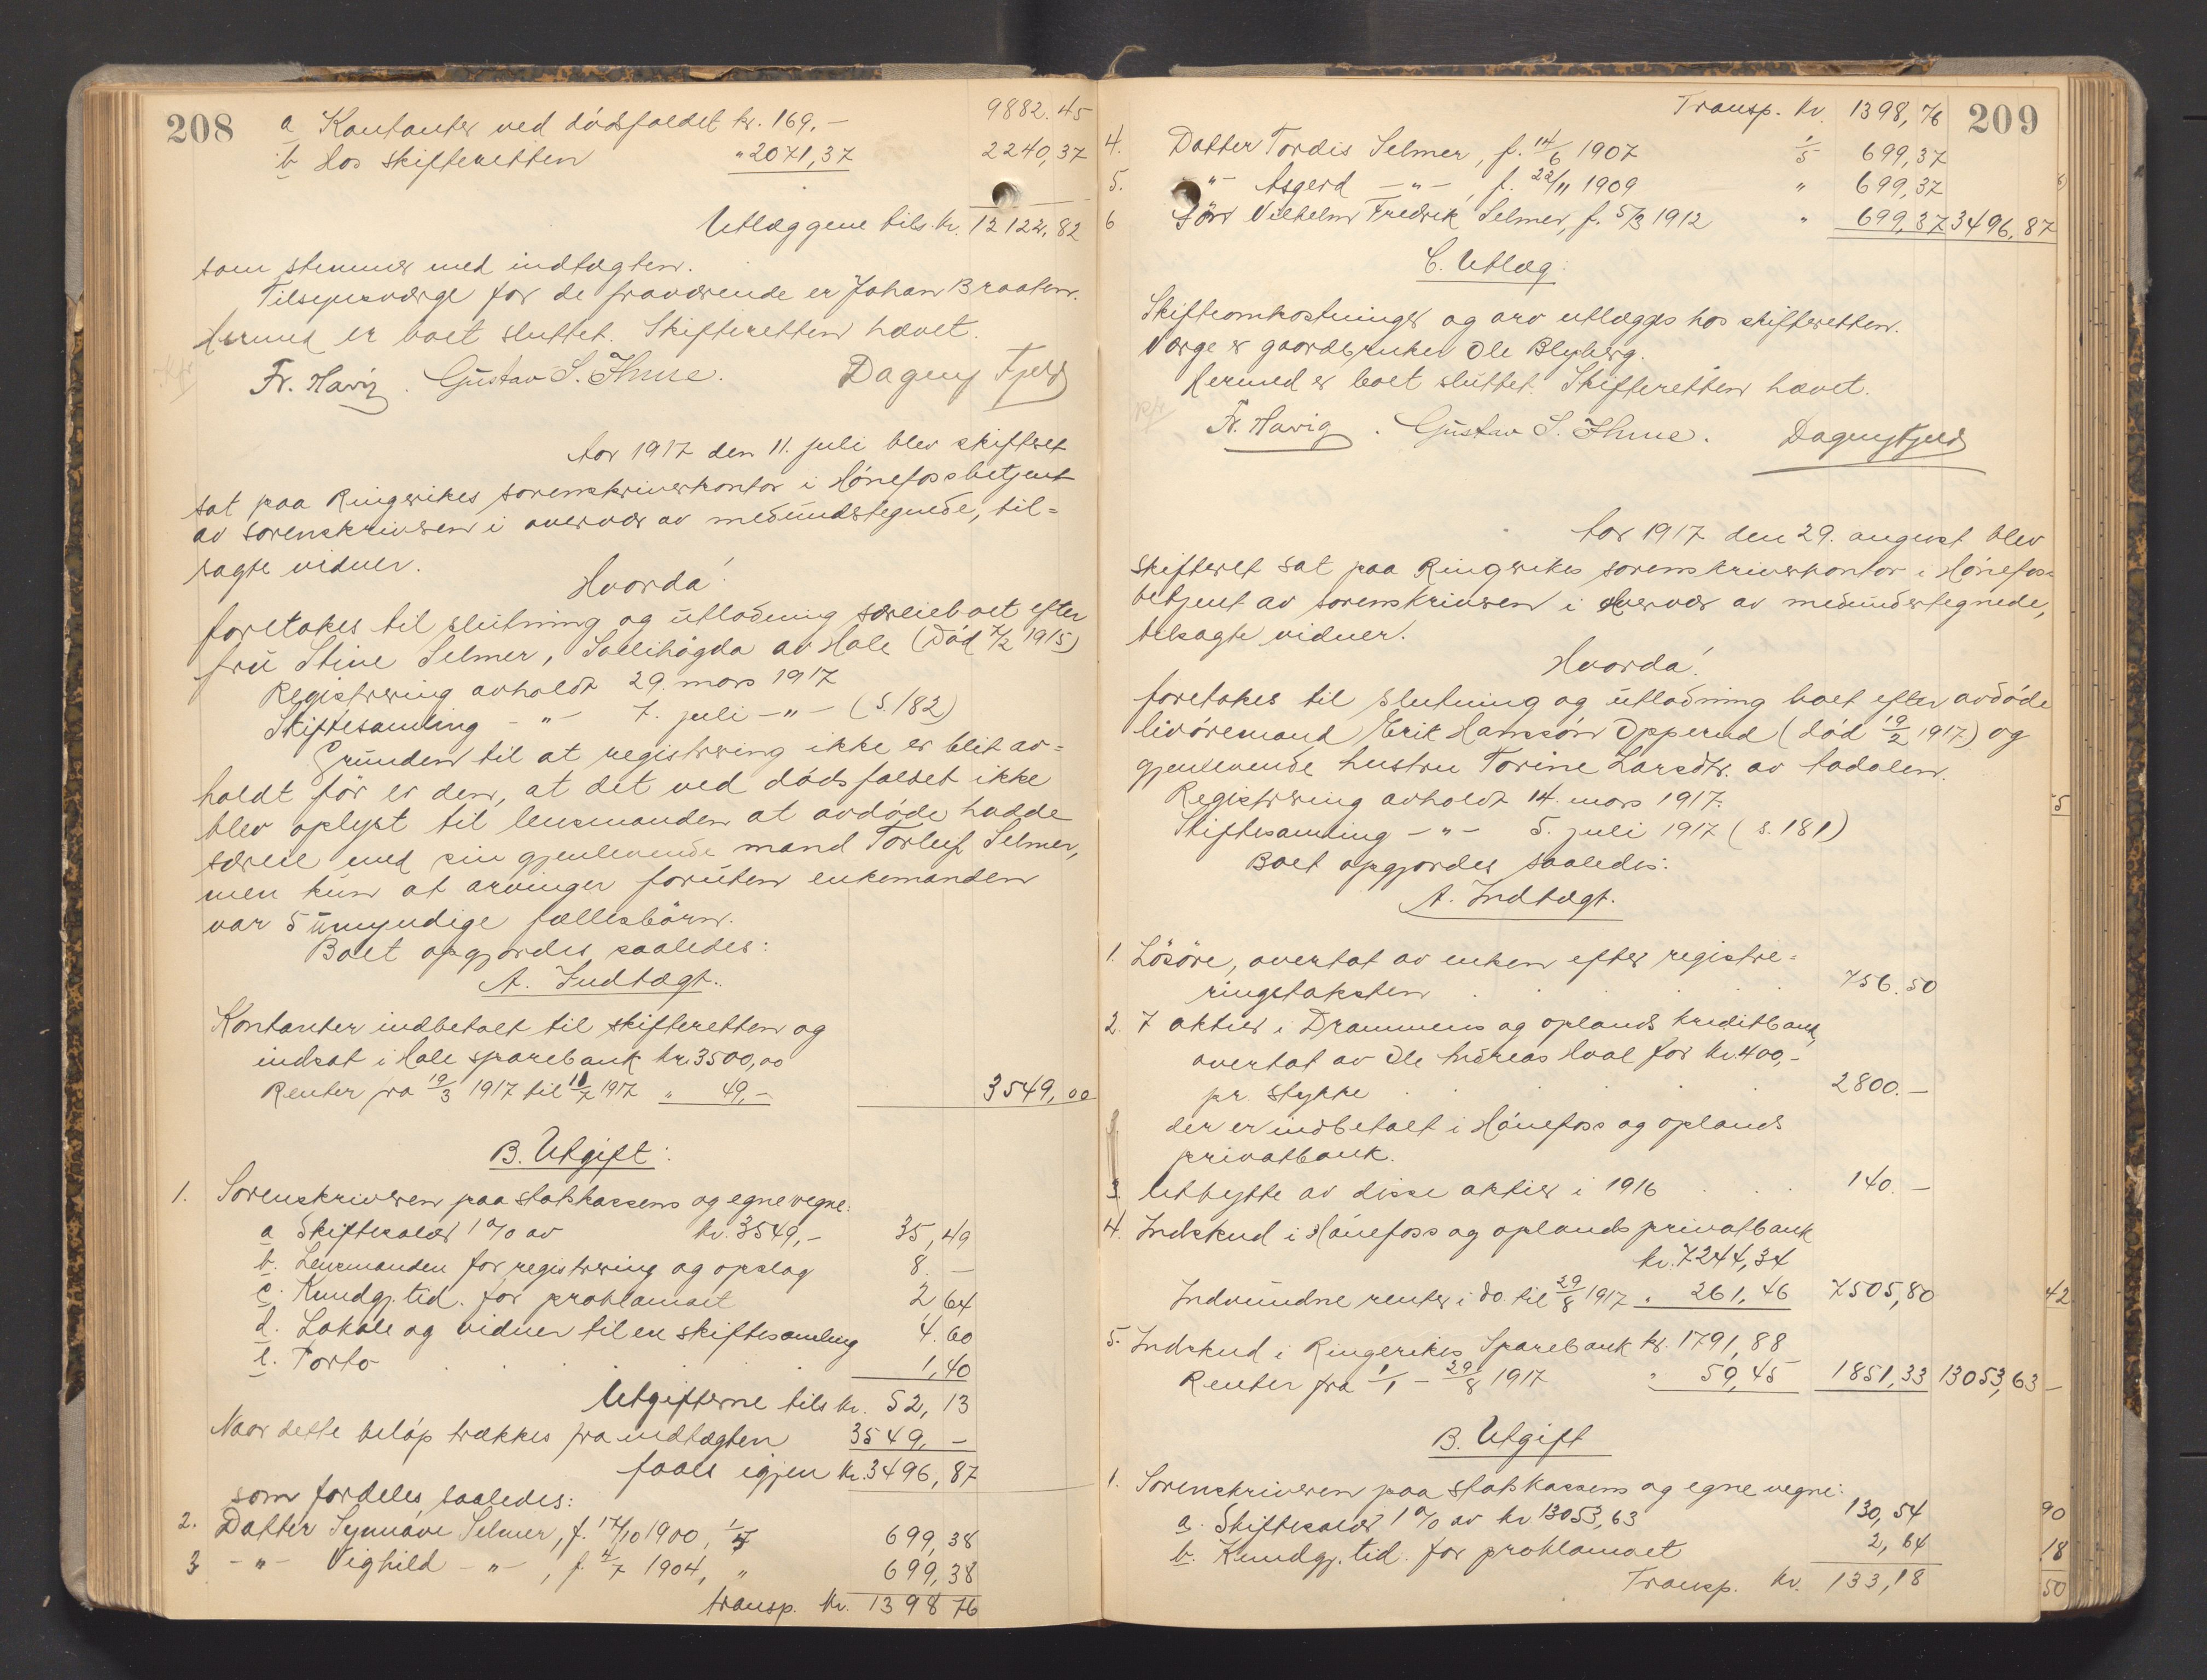 208
a Kontanter ved dödsfaldet kr. 169,- 9882.45
b Hos skifteretten " 2071,37 2240,37
Utlæggene tils. kr. 12122,82
som stemmer med indtægten.
Tilsynsværge for de fraværende er Johan Braaten.
Hermed er boet sluttet. Skifteretten hævet.
Fr. Havig. Gustav S. Ihme. Dagny Fjeld
Aar 1917 den 11. juli blev skifteret
sat paa Ringerikes sorenskriverkontor i Hönefoss betjent
av sorenskriveren i overvær av medundertegnede, til=
sagte vidner.
Hvorda!
foretokes til slutning og utlodning særeieboet efter
fru Stine Selmer, Sollihögda av Hole (död 7/2 1915)
Registrering avholdt 29. mars 1917
Skiftesamling -"- 7. juli -"- (s. 182)
Grunden til at registrering ikke er blit av=
holdt för er den, at det ved dödsfaldet ikke
blev oplyst til lensmanden at avdöde hadde
særeie med sin gjenlevende mand Torleif Selmer,
men kun at arvinger foruten enkemanden
var 5 umyndige fællesbörn.
Boet opgjordes saaledes:
A. Indtægt.
Kontanter indbetalt til skifteretten og
indsat i Hole sparebank kr. 3500,00
Renter fra 19/3 1917 til 11/7 1917 " 49,- 3549,00
B. Utgift:
1. Sorenskriveren paa statskassens og egne vegne:
a Skiftesalær 1% av kr. 3549,- 35,49
b. Lensmanden for registrering og opslag 8.-
c. Kundgj. tid. for proklamaet 2,64
d. Lokale og vidner til en skiftesamling 4.60
e. Porto 1,40
Utgifterne tils kr. 52,13
Naar dette belöp trækkes fra indtægten 3549,-
faaes igjen kr. 3496,87
som fordeles saaledes:
2. Datter Synnöve Selmer, f. 17/10 1900, 1/5 699,38
3 -"- Vighild -"-, f. 4/7 1904, " 699,38
transp. kr. 1398 76
209
Transp. kr. 1398,76
4. Datter Tordis Selmer, f. 14/6 1907 1/5 699,37
5. -"- Asgerd -"-, f. 22/11 1909 " 699,37
6 Sön Vilhelm Fredrik Selmer, f. 5/3 1912 " 699,37 3496,87
C. Utlæg:
Skifteomkostninger og arv utlægges hos skifteretten.
Værge er gaardbruker Ole Blyberg.
Hermed er boet sluttet. Skifteretten hævet.
Fr. Havig. Gustav S. Ihme. Dagny Fjeld
Aar 1917 den 29. august blev
skifteret sat paa Ringerikes sorenskriverkontor i Hönefoss
betjent av sorenskriveren i overvær av medundertegnede,
tilsagte vidner.
Hvorda!
foretokes til slutning og utlodning boet efter avdöde
livöremand Erik Hanssön Opperud (död 19/2 1917) og
gjenlevende hustru Torine Larsdtr. av Aadalen.
Registrering avholdt 14. mars 1917.
Skiftesamling -"- 5. juli 1917 (s. 181)
Boet opgjordes saaledes:
A. Indtægt.
1. Lösöre, overtat av enken efter registre=
ringstaksten 756.50
2. 7 aktier i Drammens og oplands kreditbank
overtat av Ole Andreas Hval for kr. 400,-
pr. stykke 2800.-
der er indbetalt i Hönefoss og oplands
privatbank.
3 Utbytte av disse aktier i 1916 140.-
4. Indskud i Hönefoss og oplands privatbank
kr. 7244,34
Indvundne renter i do. til 29/8 1917 " 261,46 7505,80
5. Indskud i Ringerikes Sparebank kr. 1791,88
Renter fra 1/1 - 29/8 1917 " 59,45 1851,33 13053,63
B. Utgift
1. Sorenskriveren paa statskassens og egne vegne:
a. Skiftesalær 1% av kr 13053,63 130,54
b. Kundgj. tid. for proklamaet 2,64
Transp. kr. 133,18
5
42
90
18
50